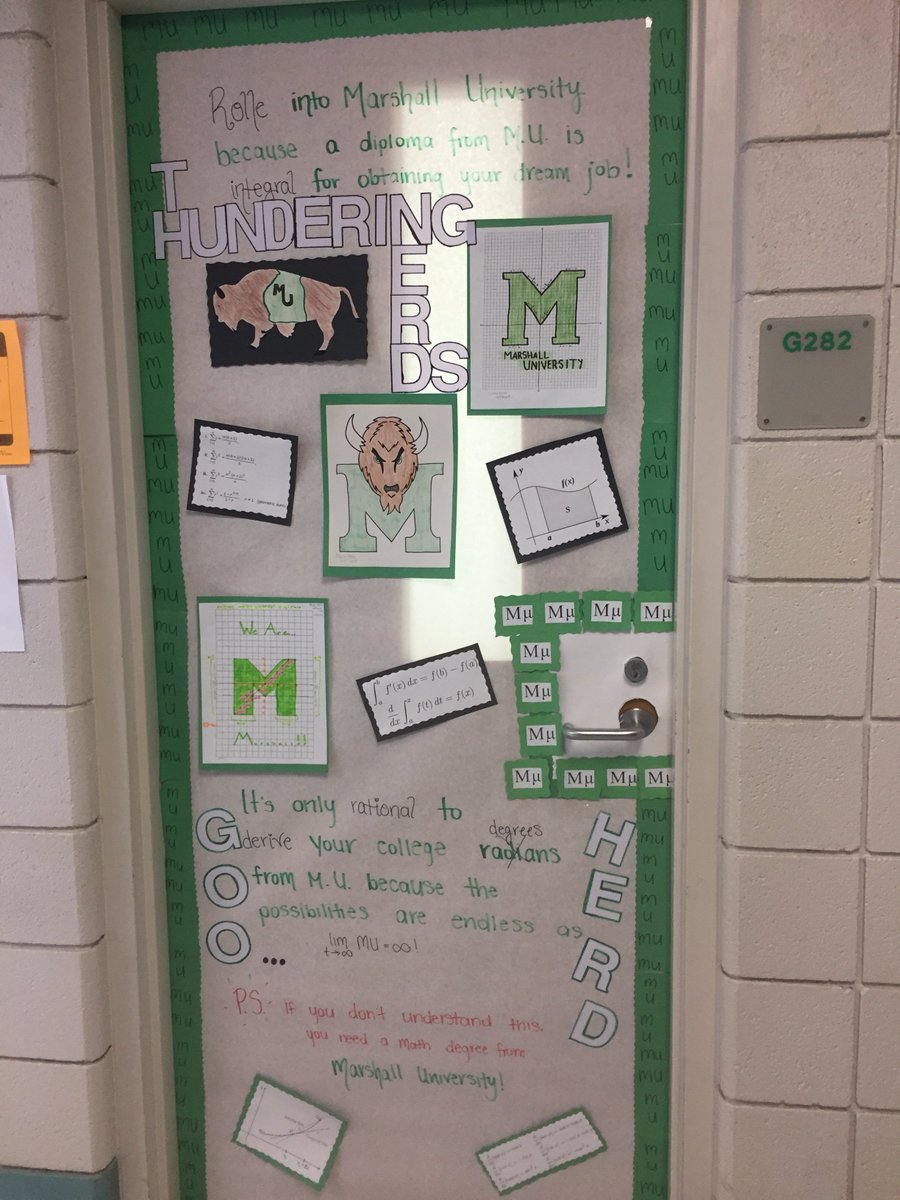 Rolle into Marshall University
because a diploma from M.U. is
integral for obtaining your dream job!
THUNDERING
NERDS
MU
M
MARSHALL
UNIVERSITY
G282
M
y
f(x)
S
a
b
x
We Are...
M
Marshall!!
∫ₐᵇ f'(x) dx = f(b) − f(a)
d/dx ∫ₐˣ f(t) dt = f(x)
Mμ Mμ Mμ Mμ
Mμ
Mμ
Mμ
Mμ Mμ Mμ Mμ
It's only rational to
derive your college radians degrees
from M.U. because the
possibilities are endless as
lim t→∞ MU = ∞!
GOO...
HERD
P.S. If you don't understand this,
you need a math degree from
Marshall University!